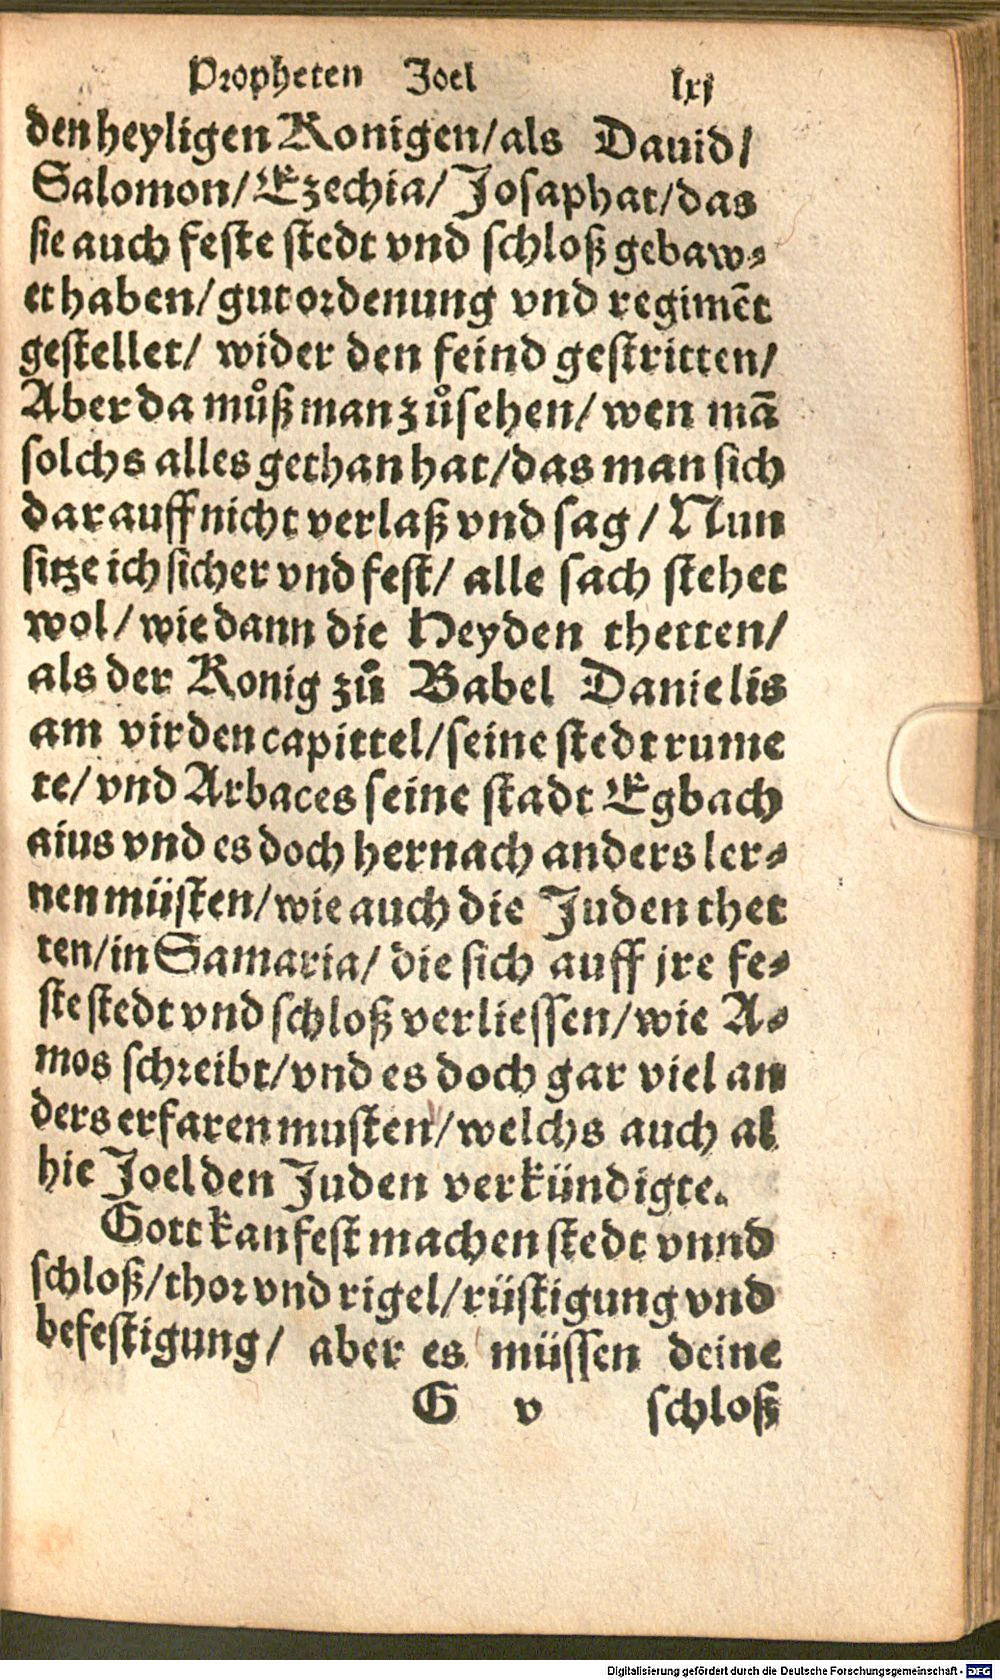 Propheten Joel lxj
den heyligen Konigen/als Dauid/
Salomon/Ezechia/Josaphat/das
sie auch feste stedt vnd schloß gebaw-
et haben/gut ordenung vnd regimēt
gestellet/ wider den feind gestritten/
Aber da můß man zůsehen/ wen mā
solchs alles gethan hat/das man sich
darauff nicht verlaß vnd sag / Nun
sitze ich sicher vnd fest/ alle sach stehet
wol/ wie dann die Heyden thetten/
als der Konig zů Babel Danielis
am virden capittel/seine stedt rume
te/ vnd Arbaces seine stadt Egbach
aius vnd es doch hernach anders ler-
nen müsten/wie auch die Juden thet
ten/in Samaria/ die sich auff jre fe-
ste stedt vnd schloß verliessen/wie A-
mos schreibt/vnd es doch gar viel an
ders erfaren musten/welchs auch al
hie Joel den Juden verkündigte.
Gott kan fest machen stedt vnnd
schloß/thor vnd rigel/rüstigung vnd
befestigung/ aber es müssen deine
G v schloß
Digitalisierung gefördert durch die Deutsche Forschungsgemeinschaft - DFG